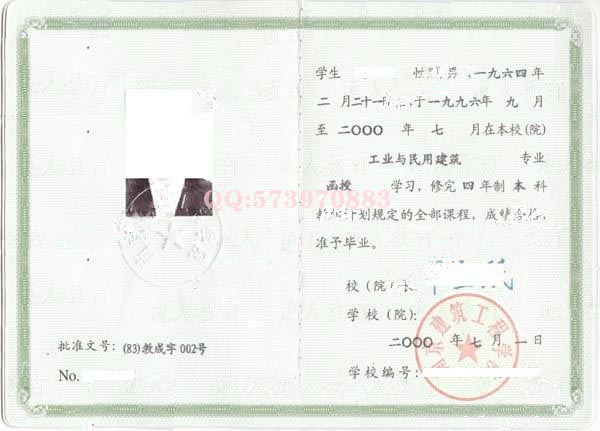 批准文号：(83)教成字 002号
No.
学生 性别 男，一九六四年
二月二十一日，于一九九六年 九 月
至 二〇〇〇 年 七 月在本校(院)
工业与民用建筑 专业
函授 学习，修完 四 年制 本 科
教学计划规定的全部课程，成绩合格，
准予毕业。
校（院）长：
学校（院）：
二〇〇〇 年 七 月 一 日
学校编号：
南京建筑工程学院
QQ:573970883